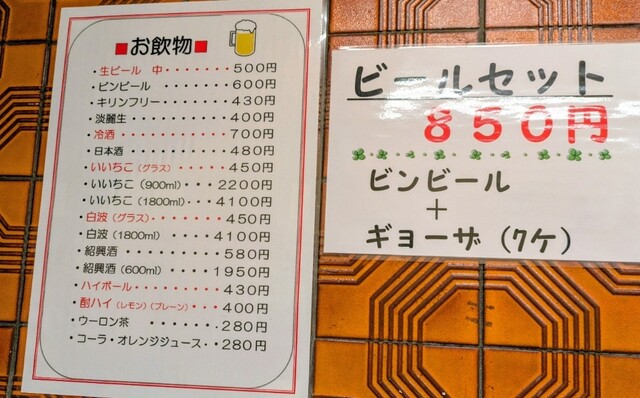 ■お飲物
・生ビール 中・・・・・・・500円
・ビンビール・・・・・・・600円
・キリンフリー・・・・・・430円
・淡麗生・・・・・・・・・400円
・冷酒・・・・・・・・・・700円
・日本酒・・・・・・・・・480円
・いいちこ(グラス)・・・・・450円
・いいちこ(900ml)・・・2200円
・いいちこ(1800ml)・・・4100円
・白波(グラス)・・・・・・450円
・白波(1800ml)・・・・4100円
・紹興酒・・・・・・・・・580円
・紹興酒(600ml)・・・・1950円
・ハイボール・・・・・・・430円
・酎ハイ(レモン)(プレーン)・・・・400円
・ウーロン茶 ・・・・・・280円
・コーラ・オレンジジュース・・280円
ビールセット
850円
ビンビール
+
ギョーザ(7ケ)